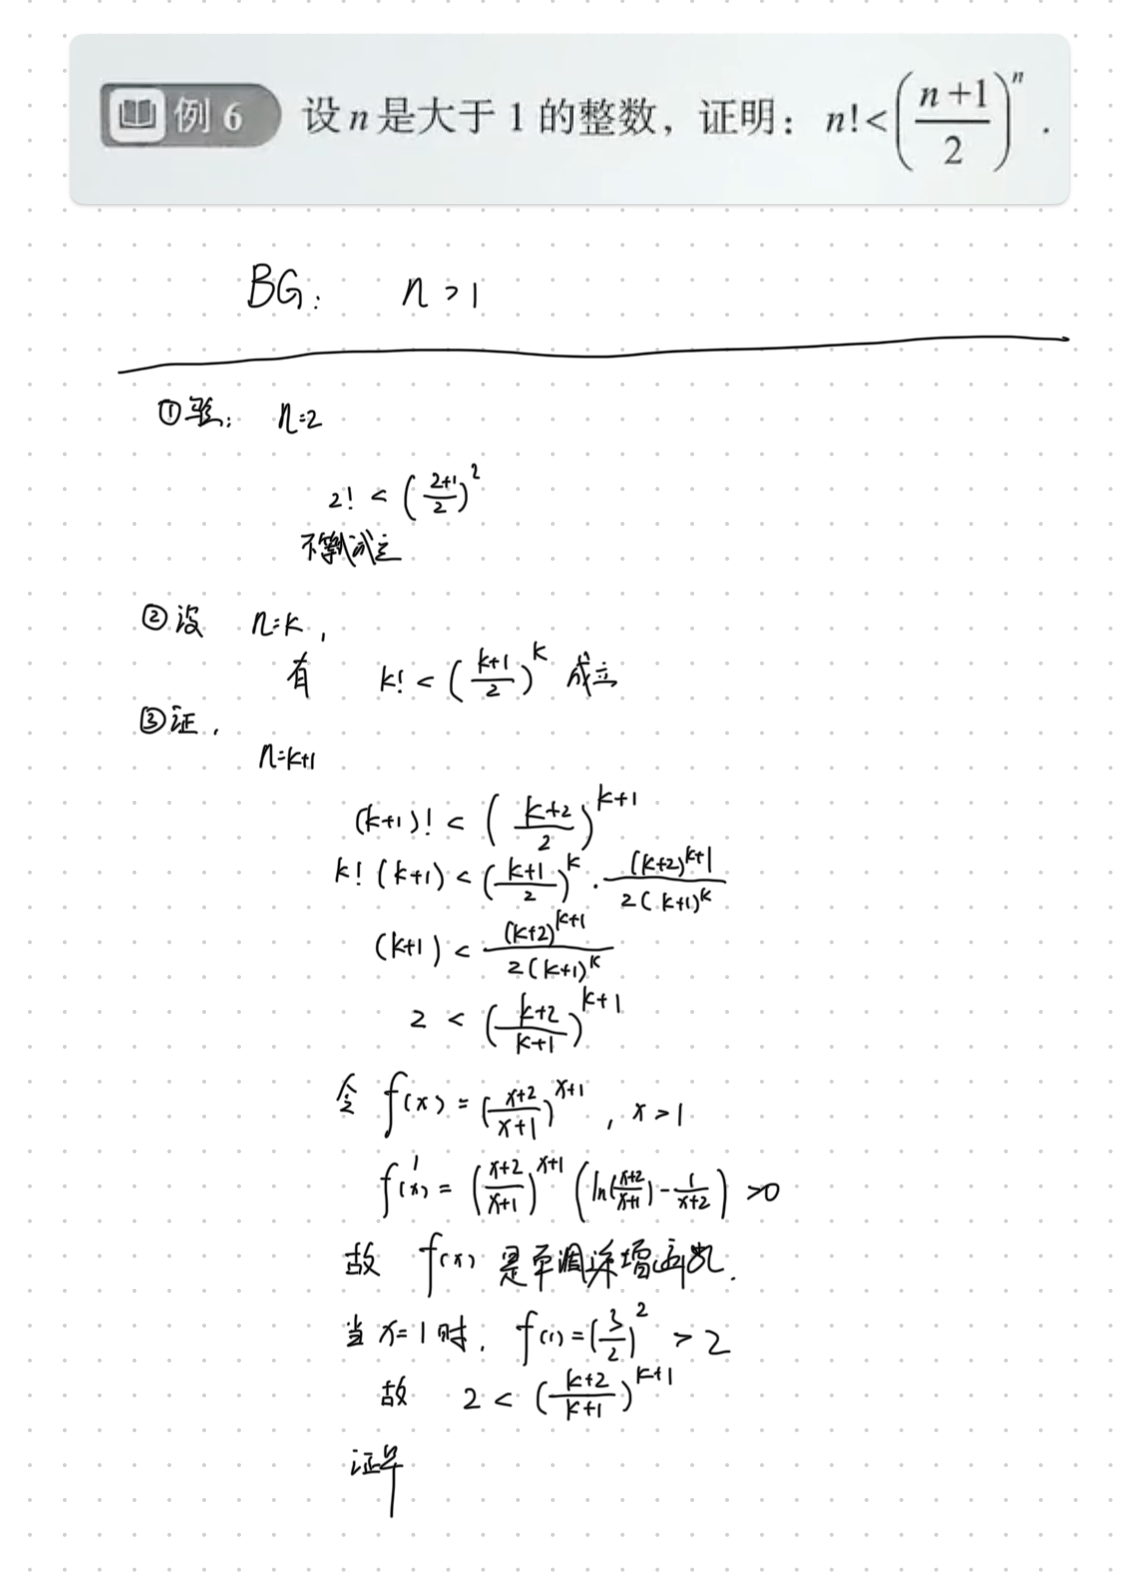 例 6 设 n 是大于 1 的整数，证明：n!<((n+1)/2)^n.
BG: n>1
①验: n=2
2! < ((2+1)/2)^2
不等式成立
②设 n=k,
有 k! < ((k+1)/2)^k 成立
③证,
n=k+1
(k+1)! < ((k+2)/2)^(k+1)
k! (k+1) < ((k+1)/2)^k · (k+2)^(k+1)/(2(k+1)^k)
(k+1) < (k+2)^(k+1)/(2(k+1)^k)
2 < ((k+2)/(k+1))^(k+1)
令 f(x) = ((x+2)/(x+1))^(x+1), x>1
f'(x) = ((x+2)/(x+1))^(x+1) (ln((x+2)/(x+1)) - 1/(x+2)) >0
故 f(x) 是单调递增函数.
当 x=1 时, f(1)=(3/2)^2 > 2
故 2 < ((k+2)/(k+1))^(k+1)
证毕